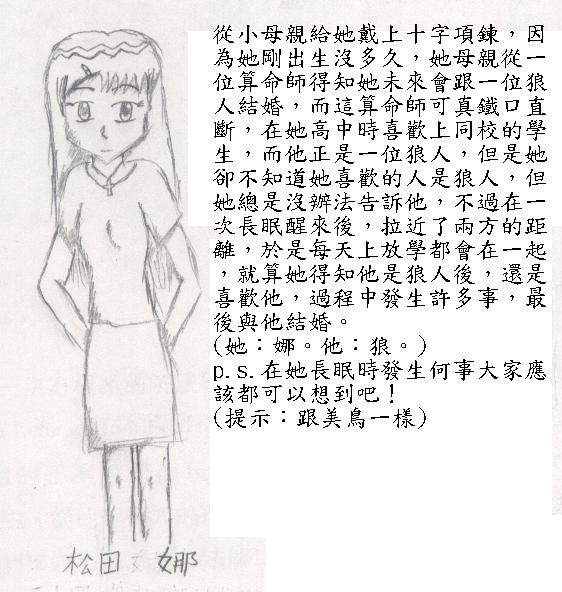 從小母親給她戴上十字項鍊，因
為她剛出生沒多久，她母親從一
位算命師得知她未來會跟一位狼
人結婚，而這算命師可真鐵口直
斷，在她高中時喜歡上同校的學
生，而他正是一位狼人，但是她
卻不知道她喜歡的人是狼人，但
她總是沒辦法告訴他，不過在一
次長眠醒來後，拉近了兩方的距
離，於是每天上放學都會在一起
，就算她得知他是狼人後，還是
喜歡他，過程中發生許多事，最
後與他結婚。
(她：娜。他：狼。)
p.s.在她長眠時發生何事大家應
該都可以想到吧！
(提示：跟美鳥一樣)
松田 娜